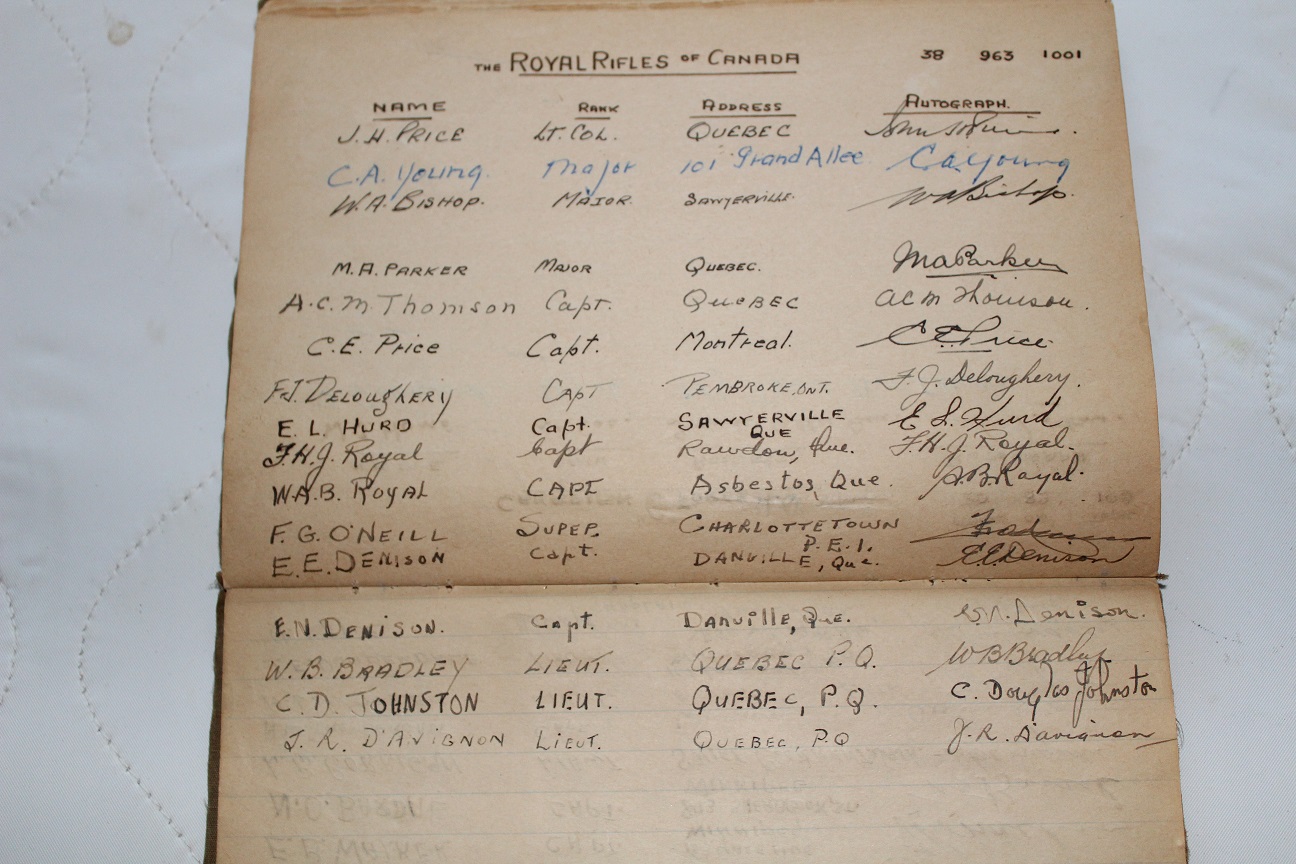 THE ROYAL RIFLES OF CANADA 38 963 1001
NAME RANK ADDRESS AUTOGRAPH.
J.H. PRICE LT. COL. QUEBEC
C.A. Young. Major 101 Grand Allee C.A. Young
W.A. BISHOP. MAJOR. SAWYERVILLE. WA Bishop.
M.A. PARKER MAJOR QUEBEC. MA Parker
A.C.M. Thomson Capt. QUEBEC ACM Thomson.
C.E. Price Capt. Montreal. CE Price
F.J. DELOUGHERY CAPT PEMBROKE, ONT. F.J. Deloughery.
E. L. HURD Capt. SAWYERVILLE E L Hurd
QUE
F.H.J. Royal Capt Rawdon, Que. F.H.J. Royal.
W.A.B. ROYAL CAPT Asbestos, Que. Royal.
F. G. O'NEILL SUPER. CHARLOTTETOWN
P.E.I.
E.E. DENISON Capt. DANVILLE, Que. E.E. Denison
E.N. DENISON. Capt. Danville, Que. E.N. Denison.
W. B. BRADLEY LIEUT. QUEBEC P.Q. WB Bradley
C. D. JOHNSTON LIEUT. QUEBEC, P.Q. C. Douglas Johnston
J. R. D'AVIGNON LIEUT. QUEBEC, P.Q J.R. D'avignon